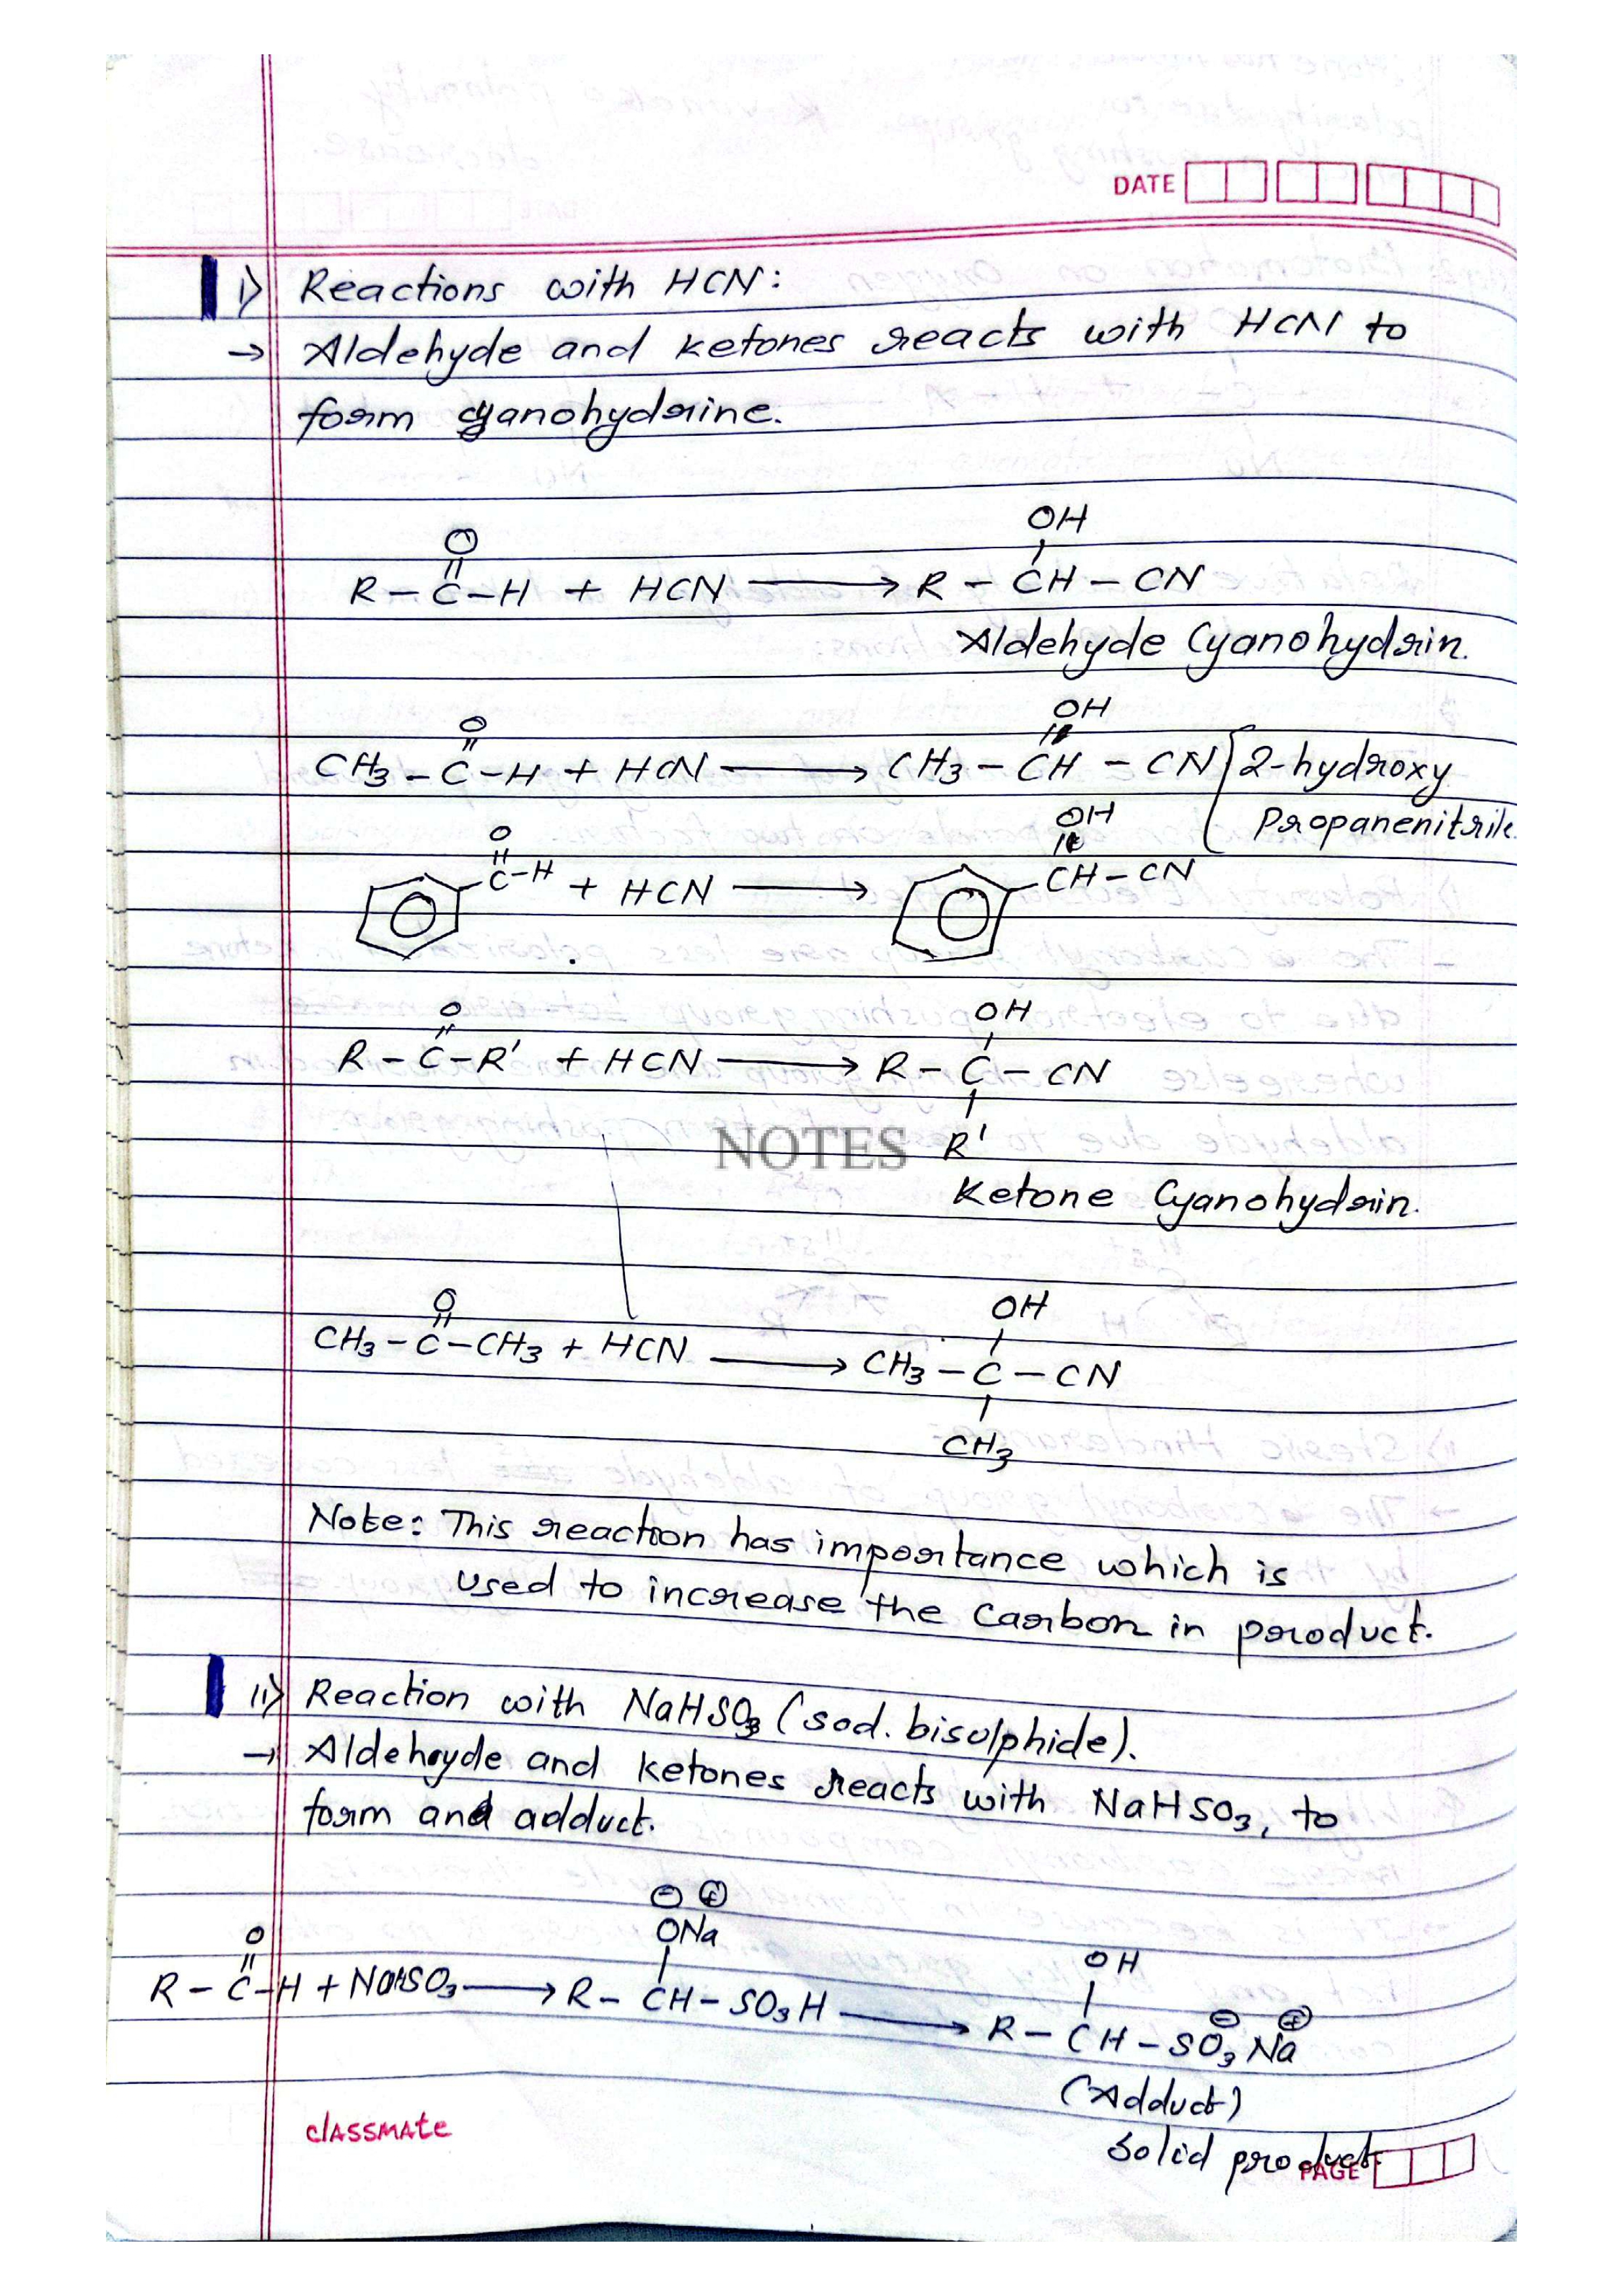 DATE
i) Reactions with HCN:
→ Aldehyde and ketones reacts with HCN to
form cyanohydrine.
O
||
R – C – H + HCN ⟶ R – CH – CN
OH
Aldehyde Cyanohydrin.
O
||
CH3 – C – H + HCN ⟶ CH3 – CH – CN { 2-hydroxy
OH
Propanenitrile.
O
||
C – H + HCN ⟶ CH – CN
OH
O
||
R – C – R' + HCN ⟶ R – C – CN
OH
R'
NOTES
Ketone Cyanohydrin.
O
||
CH3 – C – CH3 + HCN ⟶ CH3 – C – CN
OH
CH3
Note: This reaction has importance which is
used to increase the Carbon in product.
ii) Reaction with NaHSO3 (sod. bisulphide).
→ Aldehyde and ketones reacts with NaHSO3, to
form and adduct.
⊖ ⊕
O ONa
||
R – C – H + NaHSO3 ⟶ R – CH – SO3H ⟶ R – CH – SO3 Na
OH
⊖ ⊕
(Adduct)
Solid product.
classmate
PAGE